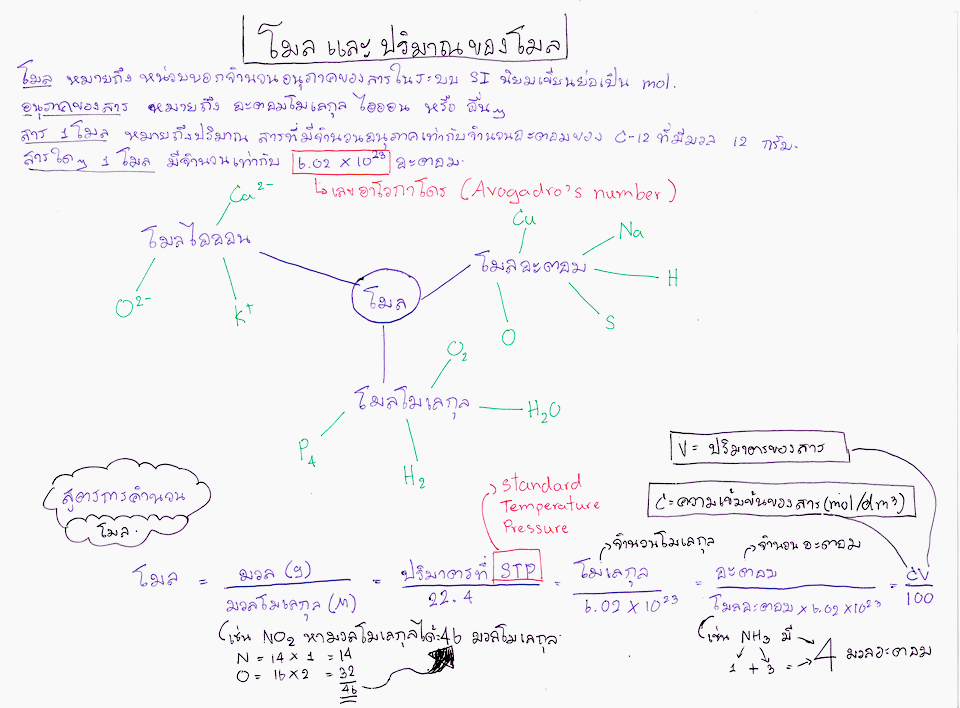 โมล และ ปริมาณของโมล
โมล หมายถึง หน่วยบอกจำนวนอนุภาคของสารในระบบ SI นิยมเขียนย่อเป็น mol.
อนุภาคของสาร หมายถึง อะตอมโมเลกุล ไอออน หรือ อื่นๆ
สาร 1 โมล หมายถึงปริมาณ สารที่มีจำนวนอนุภาคเท่ากับจำนวนอะตอมของ C-12 ที่มีมวล 12 กรัม.
สารใดๆ 1 โมล มีจำนวนเท่ากับ 6.02 x 10²³ อะตอม.
เลขอาโวกาโดร (Avogadro's number)
Ca²⁻
โมลไอออน
O²⁻
K⁺
Cu
Na
โมลอะตอม
H
S
O
โมล
O₂
โมลโมเลกุล
H₂O
P₄
H₂
V = ปริมาตรของสาร
C = ความเข้มข้นของสาร (mol/dm³)
สูตรการคำนวน
โมล.
standard
Temperature
Pressure
จำนวนโมเลกุล
จำนวนอะตอม
โมล = มวล (g) = ปริมาตรที่ STP = โมเลกุล = อะตอม = CV
มวลโมเลกุล (M) 22.4 6.02 x 10²³ โมลอะตอม x 6.02 x 10²³ 100
เช่น NO₂ หามวลโมเลกุลได้ 46 มวลโมเลกุล.
N = 14 x 1 = 14
O = 16 x 2 = 32
46
เช่น NH₃ มี 4 มวลอะตอม
1 + 3 =